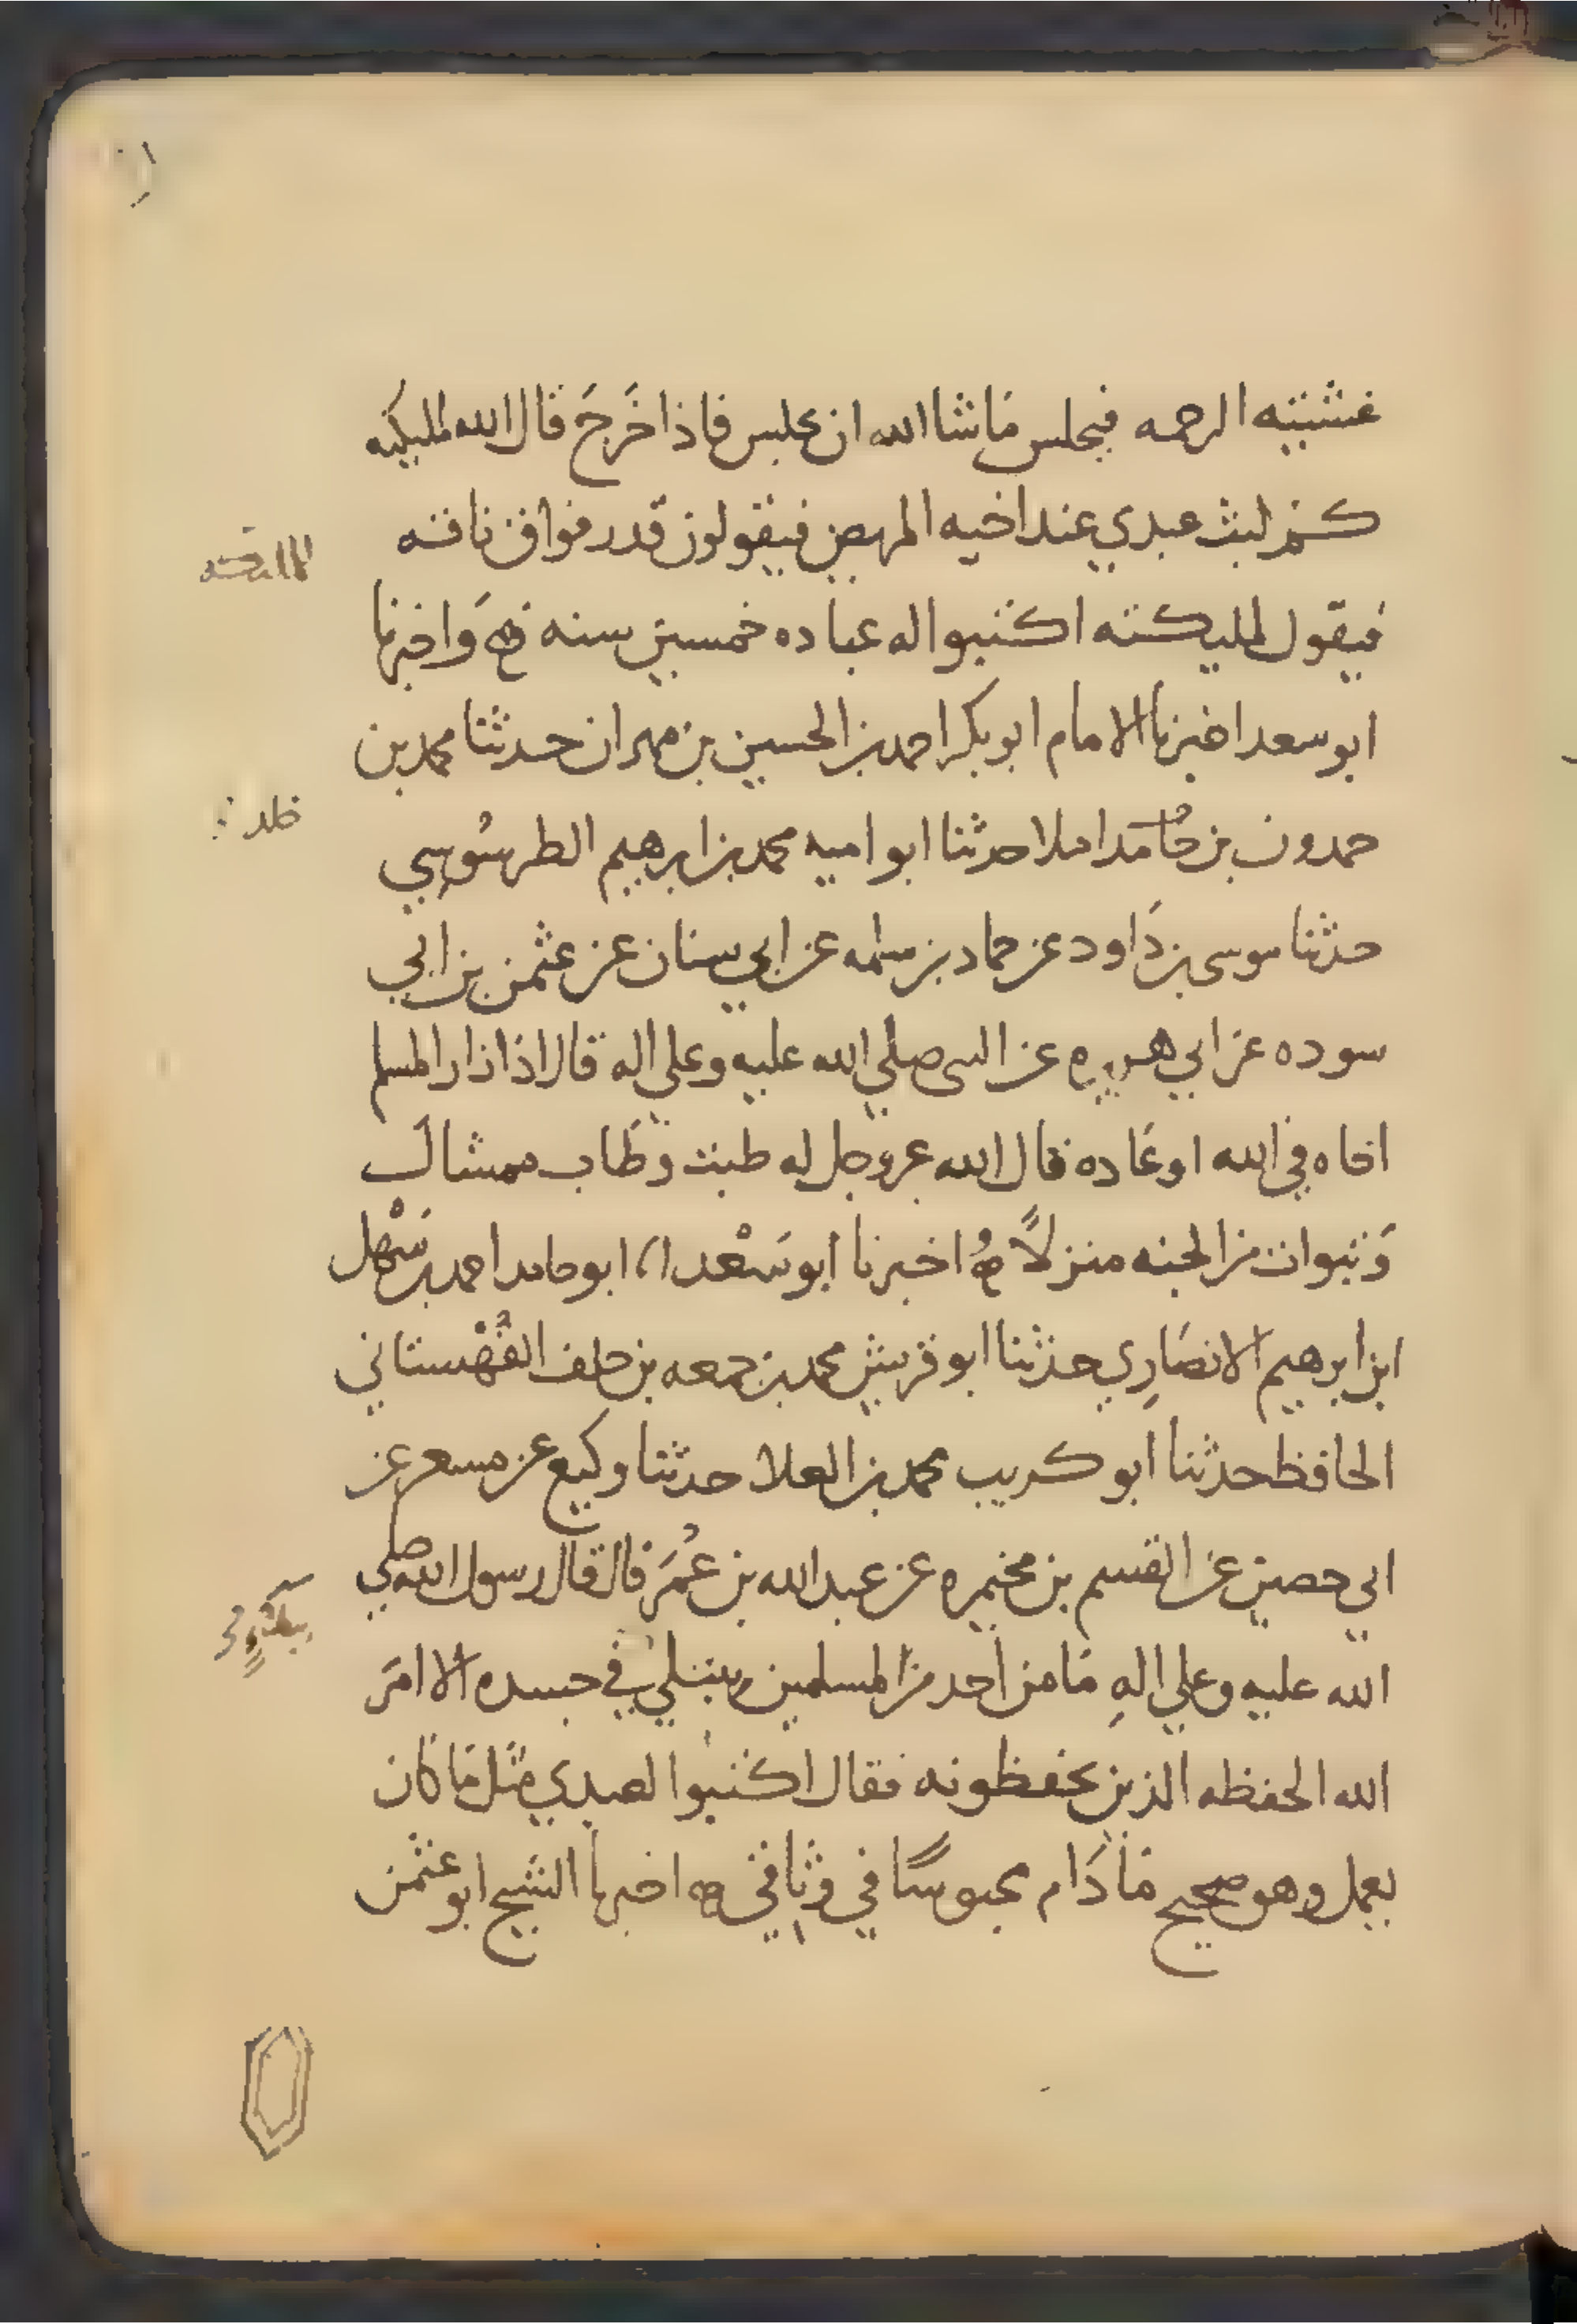 غشيته الرحمه فيجلس ماشا الله ان يجلس فاذا خَرَجَ قال الله لمليكته
كم لبث عبدي عند اخيه المريض فيقولون قدر فواق ناقه
فيقول لمليكته اكتبوا له عباده خمسين سنه وَاخبرنا
ابو سعد اخبرنا الامام ابو بكر احمد بن الحسين بن مهران حدثنا محمد بن
حمدون بن حامد املا حدثنا ابو اميه محمد بن ابرهيم الطرسُوسي
حدثنا موسى بن دَاود عن حماد بن سلمه عن ابي سنان عن عثمن بن ابي
سوده عن ابي هريره عن النبي صلي الله عليه وعلي اله قال اذا زار المسلم
اخاه في الله او عَاده قال الله عز وجل له طبت وطَاب ممشاك
وَتبوات من الجنه منزلاً اخبرنا ابو سَعْد انا ابو حامد احمد بن سَهْل
ابن ابرهيم الانصَارِي حدثنا ابو قريش محمد بن جمعه بن خلف القُهْستاني
الحافظ حدثنا ابو كريب محمد بن العلا حدثنا وكيع عن مسعر عن
ابي حصين عن القسم بن مخيمره عن عبد الله بن عُمَر قال قال رسول الله صلي
الله عليه وعلي الهِ مَا من احد من المسلمين يبتلي في جسده الا امَرَ
الله الحفظه الذين يحفظونه فقال اكتبوا لعبدي مثل مَا كان
يعمل وهو صحيح مَا دَام محبوسًا في وثاقي اخبرنا الشيخ ابو عثمن